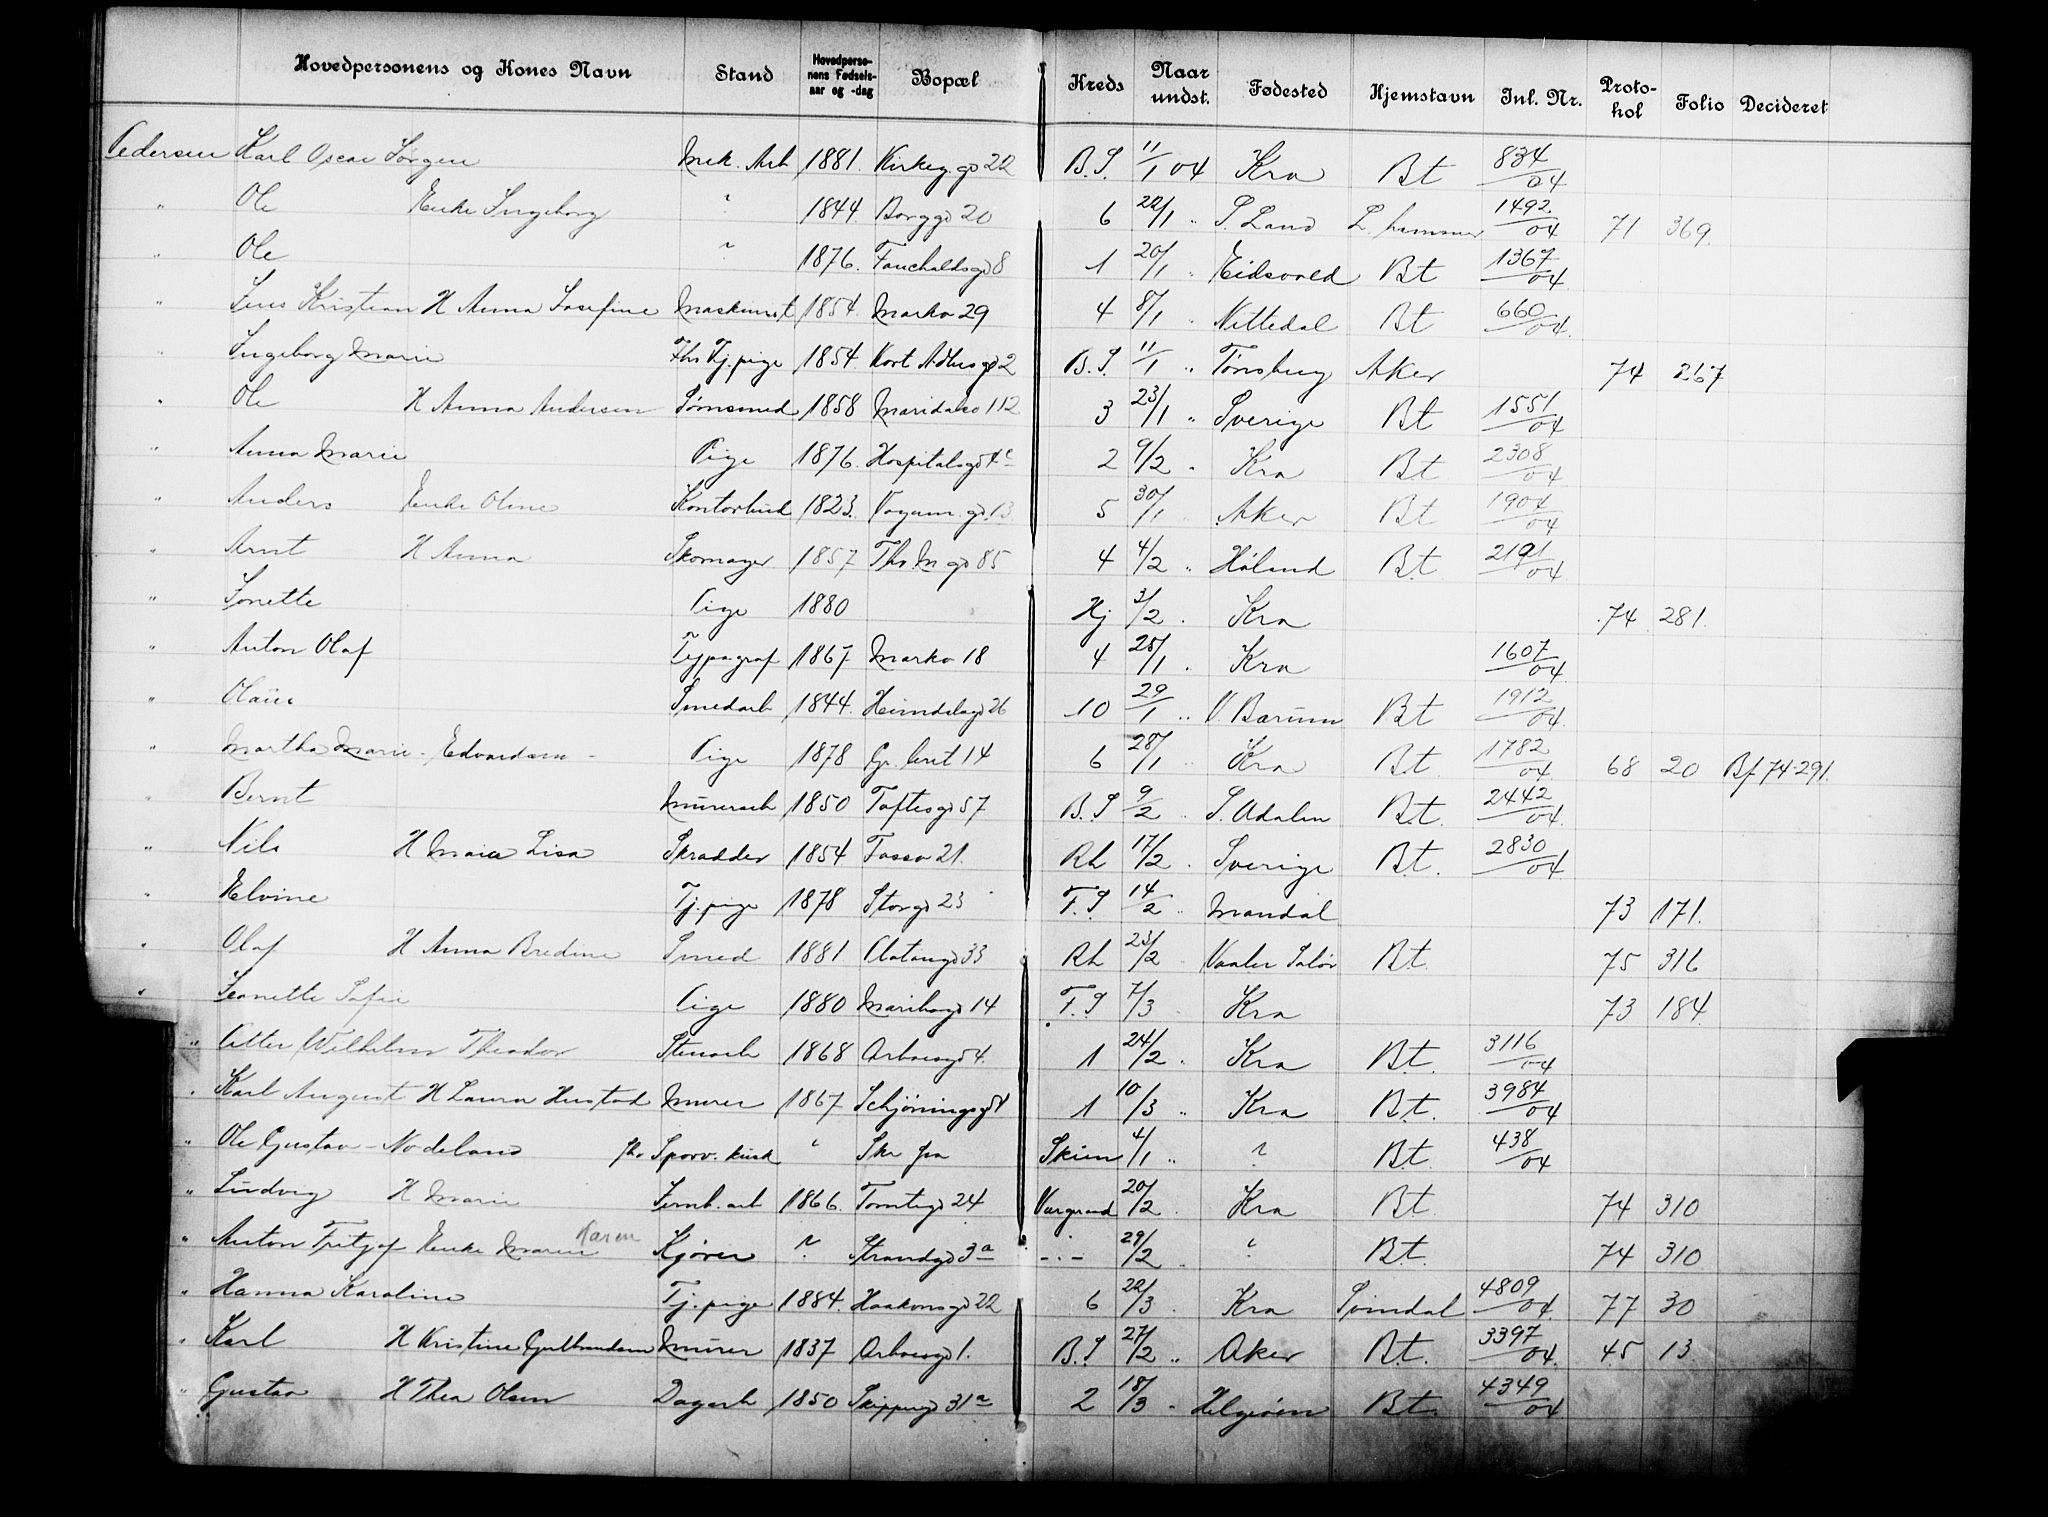 Hovedpersonens og Kones Navn Stand Hovedpersonens Fødselsaar og -dag Bopæl Kreds Naar undst. Fødested Hjemstavn Inl. Nr. Protokol Folio Decideret
Pedersen Karl Oscar Jørgen Mek. Arb 1881. Kirkeg. gd 22 B.S. 11/1 04 Kra Bt 834/04
" Ole Enke Ingeborg ? 1844. Borggd 20 6 22/1 " S. Land L.hammer 1492/04 71 369
" Ole ? 1876. Fauchaldsgd 8 1 20/1 " Eidsvold Bt 1367/04
" Jens Kristian H Anna Josefine Maskinist 1854. Markv 29 4 8/1 " Nittedal Bt 660/04
" Ingeborg Marie Fhv Tj.pige 1854. Kort Adlersgd 2 B.S. 11/1 " Tønsberg Aker 74 267
" Ole H Anna Andersen Jernsmed 1858 Maridalsv 112 3 23/1 " Sverige Bt 1551/04
" Anna Marie Pige 1876. Hospitalsgd 4c 2 9/2 " Kra Bt 2308/04
" Anders Enke Oline Kontorbud 1823. Vognm. gd. 13 5 30/1 " Aker Bt 1904/04
" Arnt H Anna Skomager 1857 Ths. M gd 85 4 4/2 " Høland Bt. 2191/04
" Jonette Pige 1880 Hj 3/2 " Kra 74 281.
" Anton Olaf Typograf 1867 Markv 18 4 25/1 " Kra 1607/04
" Olaus Smedarb 1844. Heimdalsgd 26 10 29/1 " V. Bærum Bt 1912/04
" Martha Marie - Edvardsen - Pige 1878 Gr. leret 14 6 28/1 " Kra Bt. 1782/04 68 20 Bf 74-291.
" Bernt Murerarb 1850 Toftesgd 57 B.S 9/2 " S. Odalen Bt. 2442/04
" Nils H Maria Lisa Skrædder 1854 Fossv 21. Rh 17/2 " Sverige Bt. 2830/04
" Elvine Tj.pige 1878 Storgd 23 F.S 14/2 " Mandal 73 171.
" Olaf H Anna Bredine Smed 1881. Platousgd 33 Rh 23/2 " Vaaler Solør Bt. 75 316
" Jeanette Sofie Pige 1880 Mariboegd 14 F.S 7/3 " Kra 73 184.
" Petter Wilhelm Theodor Stenarb 1868 Arboesgd 4. 1 24/2 " Kra Bt. 3116/04
" Karl August H Laura Hustad Murer 1867. Schjøningsgd 1 10/3 " Kra Bt. 3984/04
" Ole Gustav - Nodeland fhv Sporv. kusk " Ske fra Skien 4/1 " ? Bt. 438/04
" Ludvig H Marie Jernb. arb 1866. Tomtegd 24 Vargrund 20/2 " Kra Bt. 74 310
" Anton Fritjof Enke Maren Karen Kjører ? Strandgd 3a -"- 29/2 " ? Bt. 74 310
" Hanna Karoline Tj.pige 1884. Haakonsgd 22 6 22/3 " Kra 4809/04. 77 30
" Karl H Kristine Gulbrandsen Murer 1837 Arboesgd 1. B.S 27/2 " Aker Bt. 3397/04. 45 13
" Gustav H Thea Olsen Dagarb 1850 Skipperg 31a 2 18/3 " Helgøen Bt. 4349/04